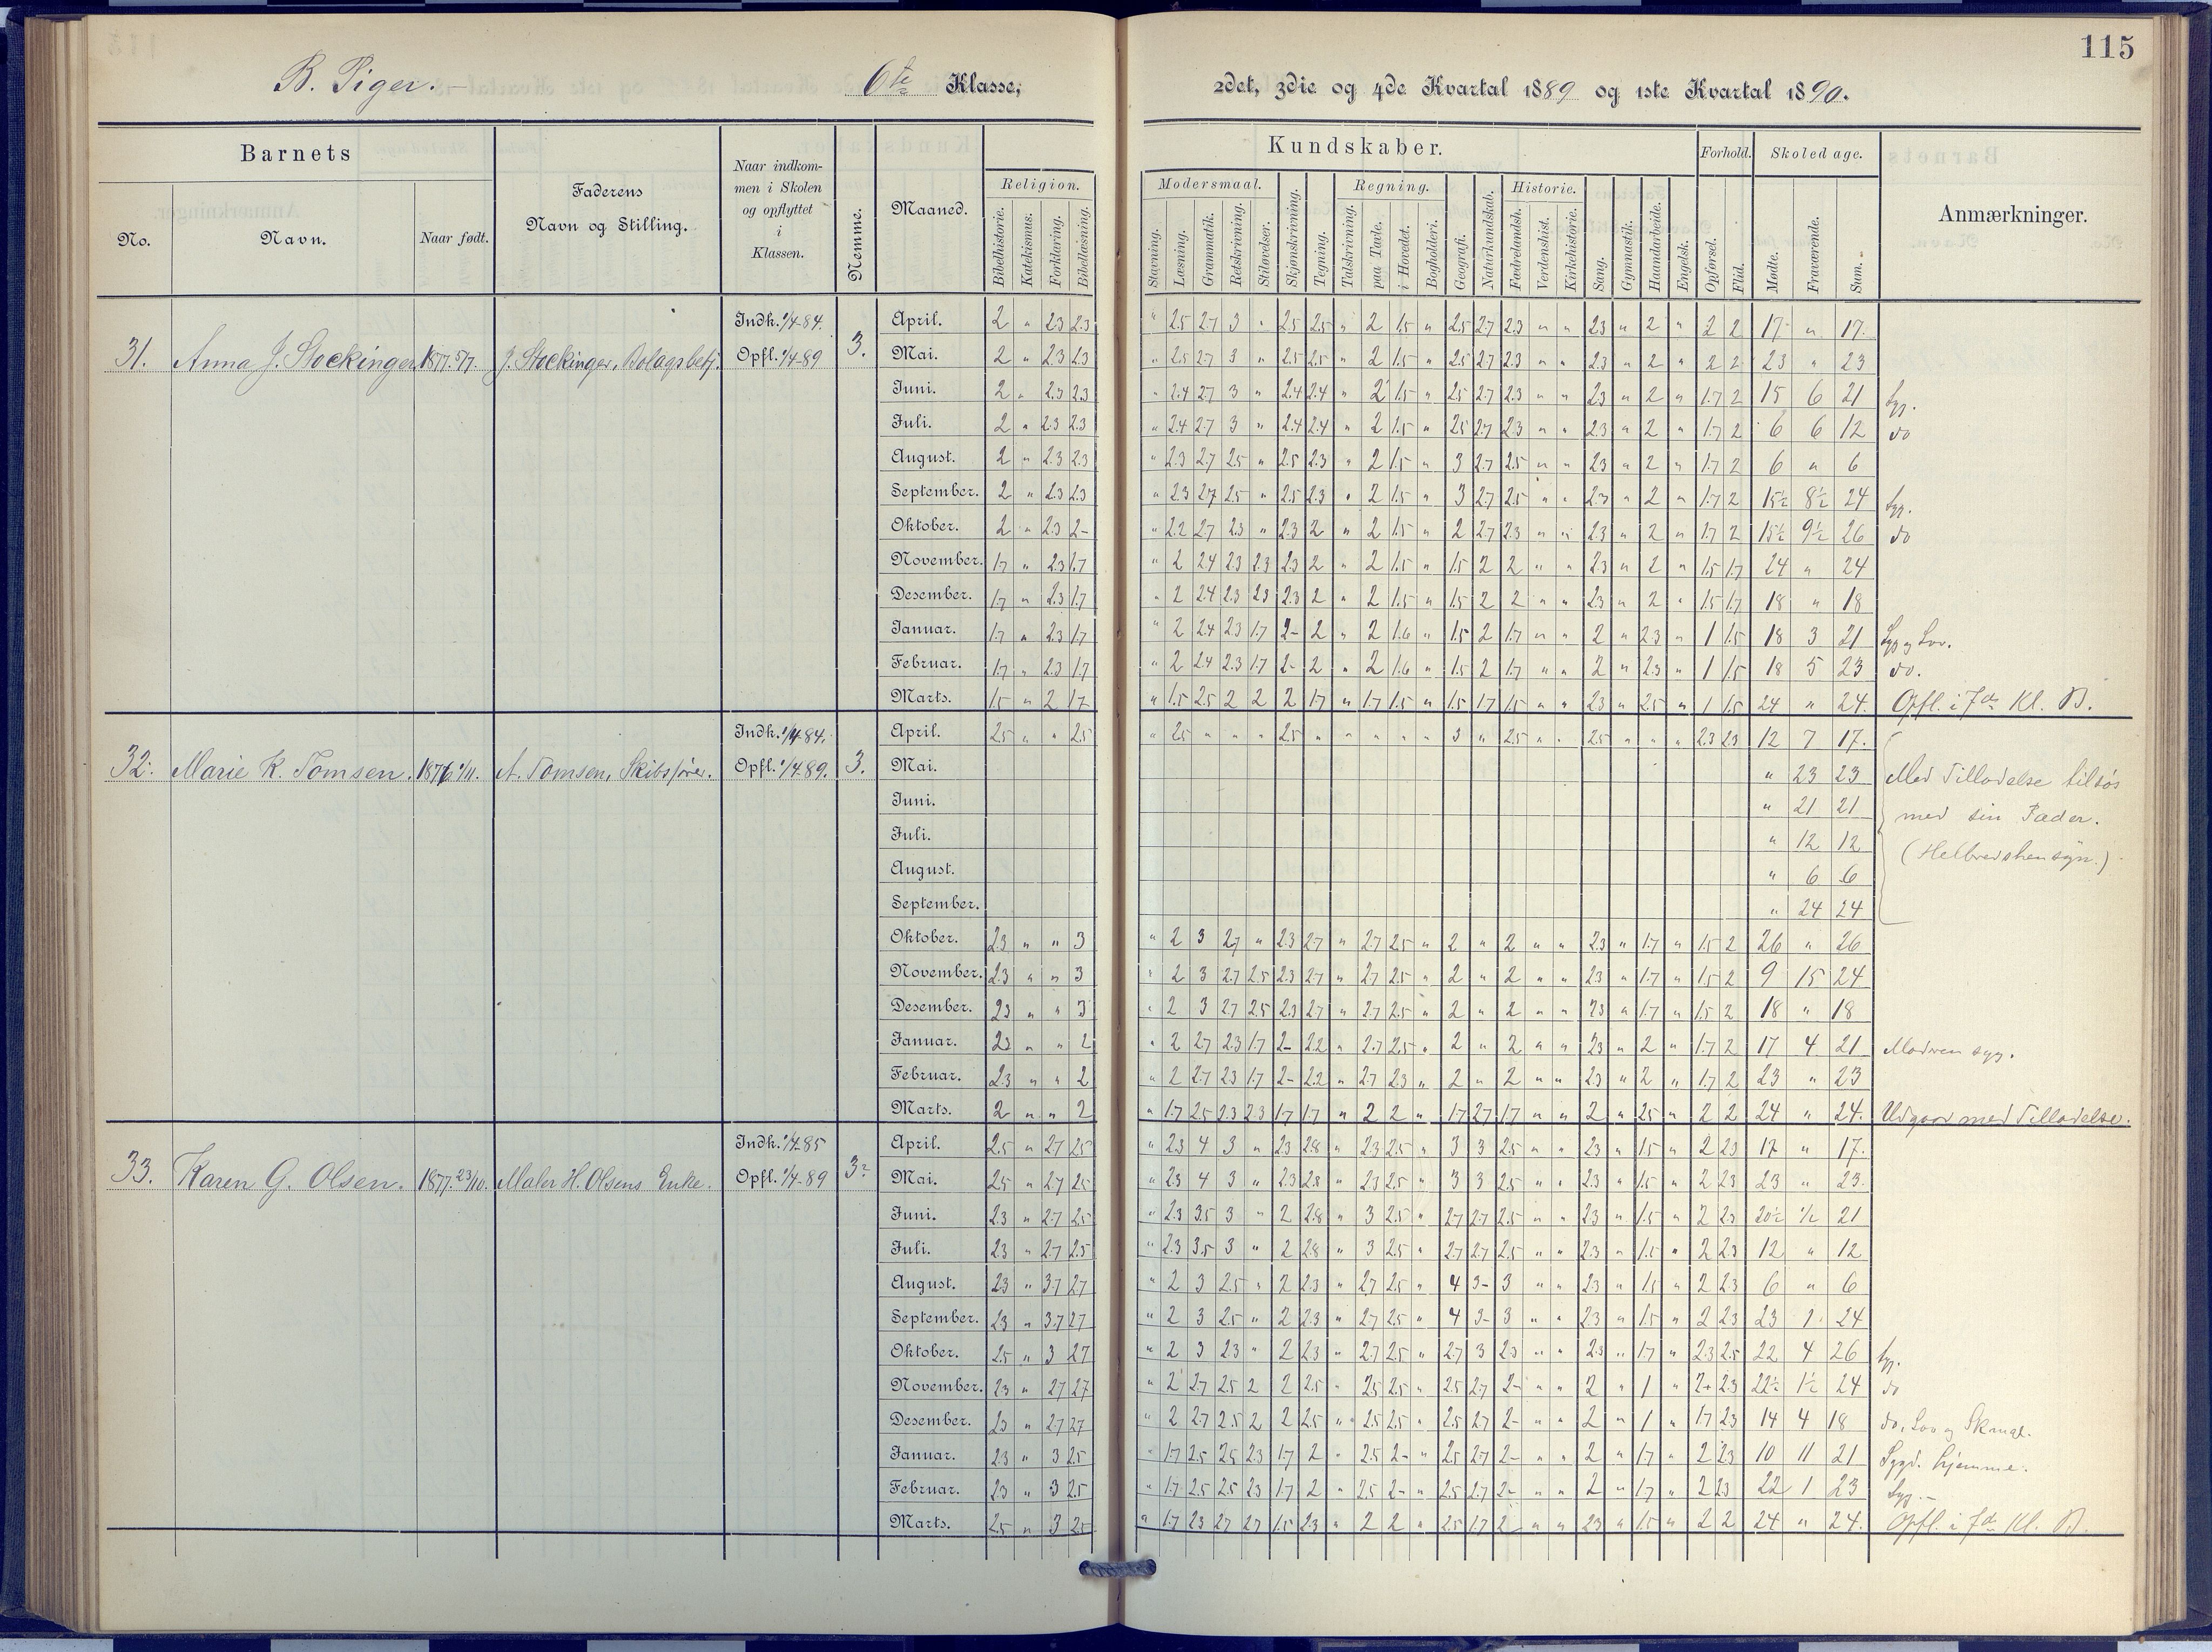 115
B. Piger. 6te Klasse, 2det, 3die og 4de Kvartal 1889 og 1ste Kvartal 1890.
Barnets
Kundskaber.
Forhold.
Skoledage.
No.
Navn.
Naar født.
Faderens
Navn og Stilling.
Naar indkom-
men i Skolen
og opflyttet
i
Klassen.
Nemme.
Maaned.
Religion.
Bibelhistorie.
Katekismus.
Forklaring.
Bibellæsning.
Modersmaal.
Stavning.
Læsning.
Grammatik.
Retskrivning.
Stiløvelser.
Skjønskrivning.
Tegning.
Regning.
Talskrivning.
paa Tavle.
i Hovedet.
Bogholderi.
Geografi.
Naturkundskab.
Historie.
Fædrelandsh.
Verdenshist.
Kirkehistorie.
Sang.
Gymnastik.
Haandarbeide.
Engelsk.
Opførsel.
Flid.
Mødte.
Fraværende.
Sum.
Anmærkninger.
31. Anna J. Stockinger 1877. 5/7. J. Stockinger, Bolagsbetj. Indk. 1/4 84. Opfl. 1/4 89 3.
April. 2 " 2.3 2.3 " 2.5 2.7 3 " 2.5 2.5 " 2 1.5 " 2.5 2.7 2.3 " " 2.3 " 2 " 2 2 17 " 17.
Mai. 2 " 2.3 2.3 " 2.5 2.7 3 " 2.5 2.5 " 2 1.5 " 2.5 2.7 2.3 " " 2.3 " 2 " 2 2 23 " 23
Juni. 2 " 2.3 2.3 " 2.4 2.7 3 " 2.4 2.4 " 2 1.5 " 2.5 2.7 2.3 " " 2.3 " 2 " 1.7 2 15 6 21 Syg.
Juli. 2 " 2.3 2.3 " 2.4 2.7 3 " 2.4 2.4 " 2 1.5 " 2.5 2.7 2.3 " " 2.3 " 2 " 1.7 2 6 6 12 do
August. 2 " 2.3 2.3 " 2.3 2.7 2.5 " 2.5 2.3 " 2 1.5 " 3 2.7 2.5 " " 2.3 " 2 " 1.7 2 6 " 6
September. 2 " 2.3 2.3 " 2.3 2.7 2.5 " 2.5 2.3 " 2 1.5 " 3 2.7 2.5 " " 2.3 " 2 " 1.7 2 15½ 8½ 24 Syg.
Oktober. 2 " 2.3 2- " 2.2 2.7 2.3 " 2.3 2 " 2 1.5 " 2 2.7 2.3 " " 2.3 " 2 " 1.7 2 15½ 9½ 26 do
November. 1.7 " 2.3 1.7 " 2 2.4 2.3 2.3 2.3 2 " 2 1.5 " 1.5 2 2 " " 2.3 " 2 " 1.5 1.7 24 " 24
Desember. 1.7 " 2.3 1.7 " 2 2.4 2.3 2.3 2.3 2 " 2 1.5 " 1.5 2 2 " " 2.3 " 2 " 1.5 1.7 18 " 18
Januar. 1.7 " 2.3 1.7 " 2 2.4 2.3 1.7 2- 2 " 2 1.6 " 1.5 2 1.7 " " 2 " 2.3 " 1 1.5 18 3 21 Syg og Lov.
Februar. 1.7 " 2.3 1.7 " 2 2.4 2.3 1.7 2- 2 " 2 1.6 " 1.5 2 1.7 " " 2 " 2.3 " 1 1.5 18 5 23 do.
Marts. 1.5 " 2 1.7 " 1.5 2.5 2 2 2 1.7 " 1.7 1.5 " 1.5 1.7 1.5 " " 2.3 " 2.5 " 1 1.5 24 " 24. Opfl. i 7de Kl. B.
32. Marie K. Tomsen. 1876 1/11. A. Tomsen, Skibsfører. Indk. 1/4 84. Opfl. 1/4 89. 3.
April. 2.5 " " 2.5 " 2.5 " " " 2.5 " " " " " 3 " 2.5 " " 2.5 " " " 2.3 2.3 12 7 17.
Mai. " 23 23 Med Tilladelse tilsøs
Juni. " 21 21 med sin Fader.
Juli. " 12 12 (Helbredshensyn.)
August. " 6 6
September. " 24 24
Oktober. 2.3 " " 3 " 2 3 2.7 " 2.3 2.7 " 2.7 2.5 " 2 " 2 " " 2.3 " 1.7 " 1.5 2 26 " 26
November. 2.3 " " 3 " 2 3 2.7 2.5 2.3 2.7 " 2.7 2.5 " 2 " 2 " " 2.3 " 1.7 " 1.5 2 9 15 24
Desember. 2.3 " " 3 " 2 3 2.7 2.5 2.3 2.7 " 2.7 2.5 " 2 " 2 " " 2.3 " 1.7 " 1.5 2 18 " 18
Januar. 2.3 " " 2 " 2 2.7 2.3 1.7 2- 2.2 " 2.7 2.5 " 2 " 2 " " 2.3 " 2 " 1.7 2 17 4 21 Modren syg.
Februar. 2.3 " " 2 " 2 2.7 2.3 1.7 2- 2.2 " 2.7 2.3 " 2 " 2 " " 2.3 " 2 " 1.7 2 23 " 23
Marts. 2 " " 2 " 1.7 2.5 2.3 2.3 1.7 1.7 " 2 2 " 1.7 2.7 1.7 " " 2 " 2.5 " 2 2 24 " 24. Udgaar med Tilladelse.
33. Karen G. Olsen. 1877. 23/10. Maler H. Olsens Enke. Indk. 1/4 85 Opfl. 1/4 89 3
April. 2.5 " 2.7 2.5 " 2.3 4 3 " 2.3 2.8 " 2.3 2.5 " 3 3 2.5 " " 2.3 " 1.5 " 2 2.3 17 " 17.
Mai. 2.5 " 2.7 2.5 " 2.3 4 3 " 2.3 2.8 " 2.3 2.5 " 3 3 2.5 " " 2.3 " 1.5 " 2 2.3 23 " 23.
Juni. 2.3 " 2.7 2.5 " 2.3 3.5 3 " 2 2.8 " 3 2.5 " 2.7 2.7 2.5 " " 2.3 " 1.5 " 2 2.3 20½ ½ 21
Juli. 2.3 " 2.7 2.5 " 2.3 3.5 3 " 2 2.8 " 3 2.5 " 2.7 2.7 2.5 " " 2.3 " 1.5 " 2 2.3 12 " 12
August. 2.3 " 3.7 2.7 " 2 3 2.5 " 2 2.3 " 2.7 2.5 " 4 3- 3 " " 2.3 " 1.5 " 2 2.3 6 " 6
September. 2.3 " 3.7 2.7 " 2 3 2.5 " 2 2.3 " 2.7 2.5 " 4 3- 3 " " 2.3 " 1.5 " 2 2.3 23 1 24
Oktober. 2.5 " 3 2.7 " 2 3 2.3 " 2 2.3 " 2.7 2.5 " 2.7 3 2.3 " " 2.3 " 1.7 " 2.3 2.5 22 4 26 Syg.
November. 2.3 " 2.7 2.7 " 2 2.7 2.5 2 2 2.5 " 2.5 2.5 " 2.5 2.7 2- " " 2 " 1 " 2+ 2.3 22½ 1½ 24 do
Desember. 2.3 " 2.7 2.7 " 2 2.7 2.5 2 2 2.5 " 2.5 2.5 " 2.5 2.7 2- " " 2 " 1 " 1.7 2.3 14 4 18 do, Lov og
Januar. 2.3 " 3 2.5 " 1.7 2.5 2.5 2.3 1.7 2 " 2.5 2- " 2.5 2.7 2- " " 2 " 1.7 " 2 2.3 10 11 21 Sygd. hjemme.
Februar. 2.3 " 3 2.5 " 1.7 2.5 2.5 2.3 1.7 2 " 2.5 2- " 2.5 2.7 2- " " 2 " 1.7 " 2 2.3 22 1 23 Syg.
Marts. 2.5 " 3 2.5 " 1.7 2.3 2.7 2.7 1.5 2.3 " 2 2 " 2.5 1.7 2 " " 2.3 " 1.5 " 2 2 24 " 24. Opfl. i 7de Kl. B.